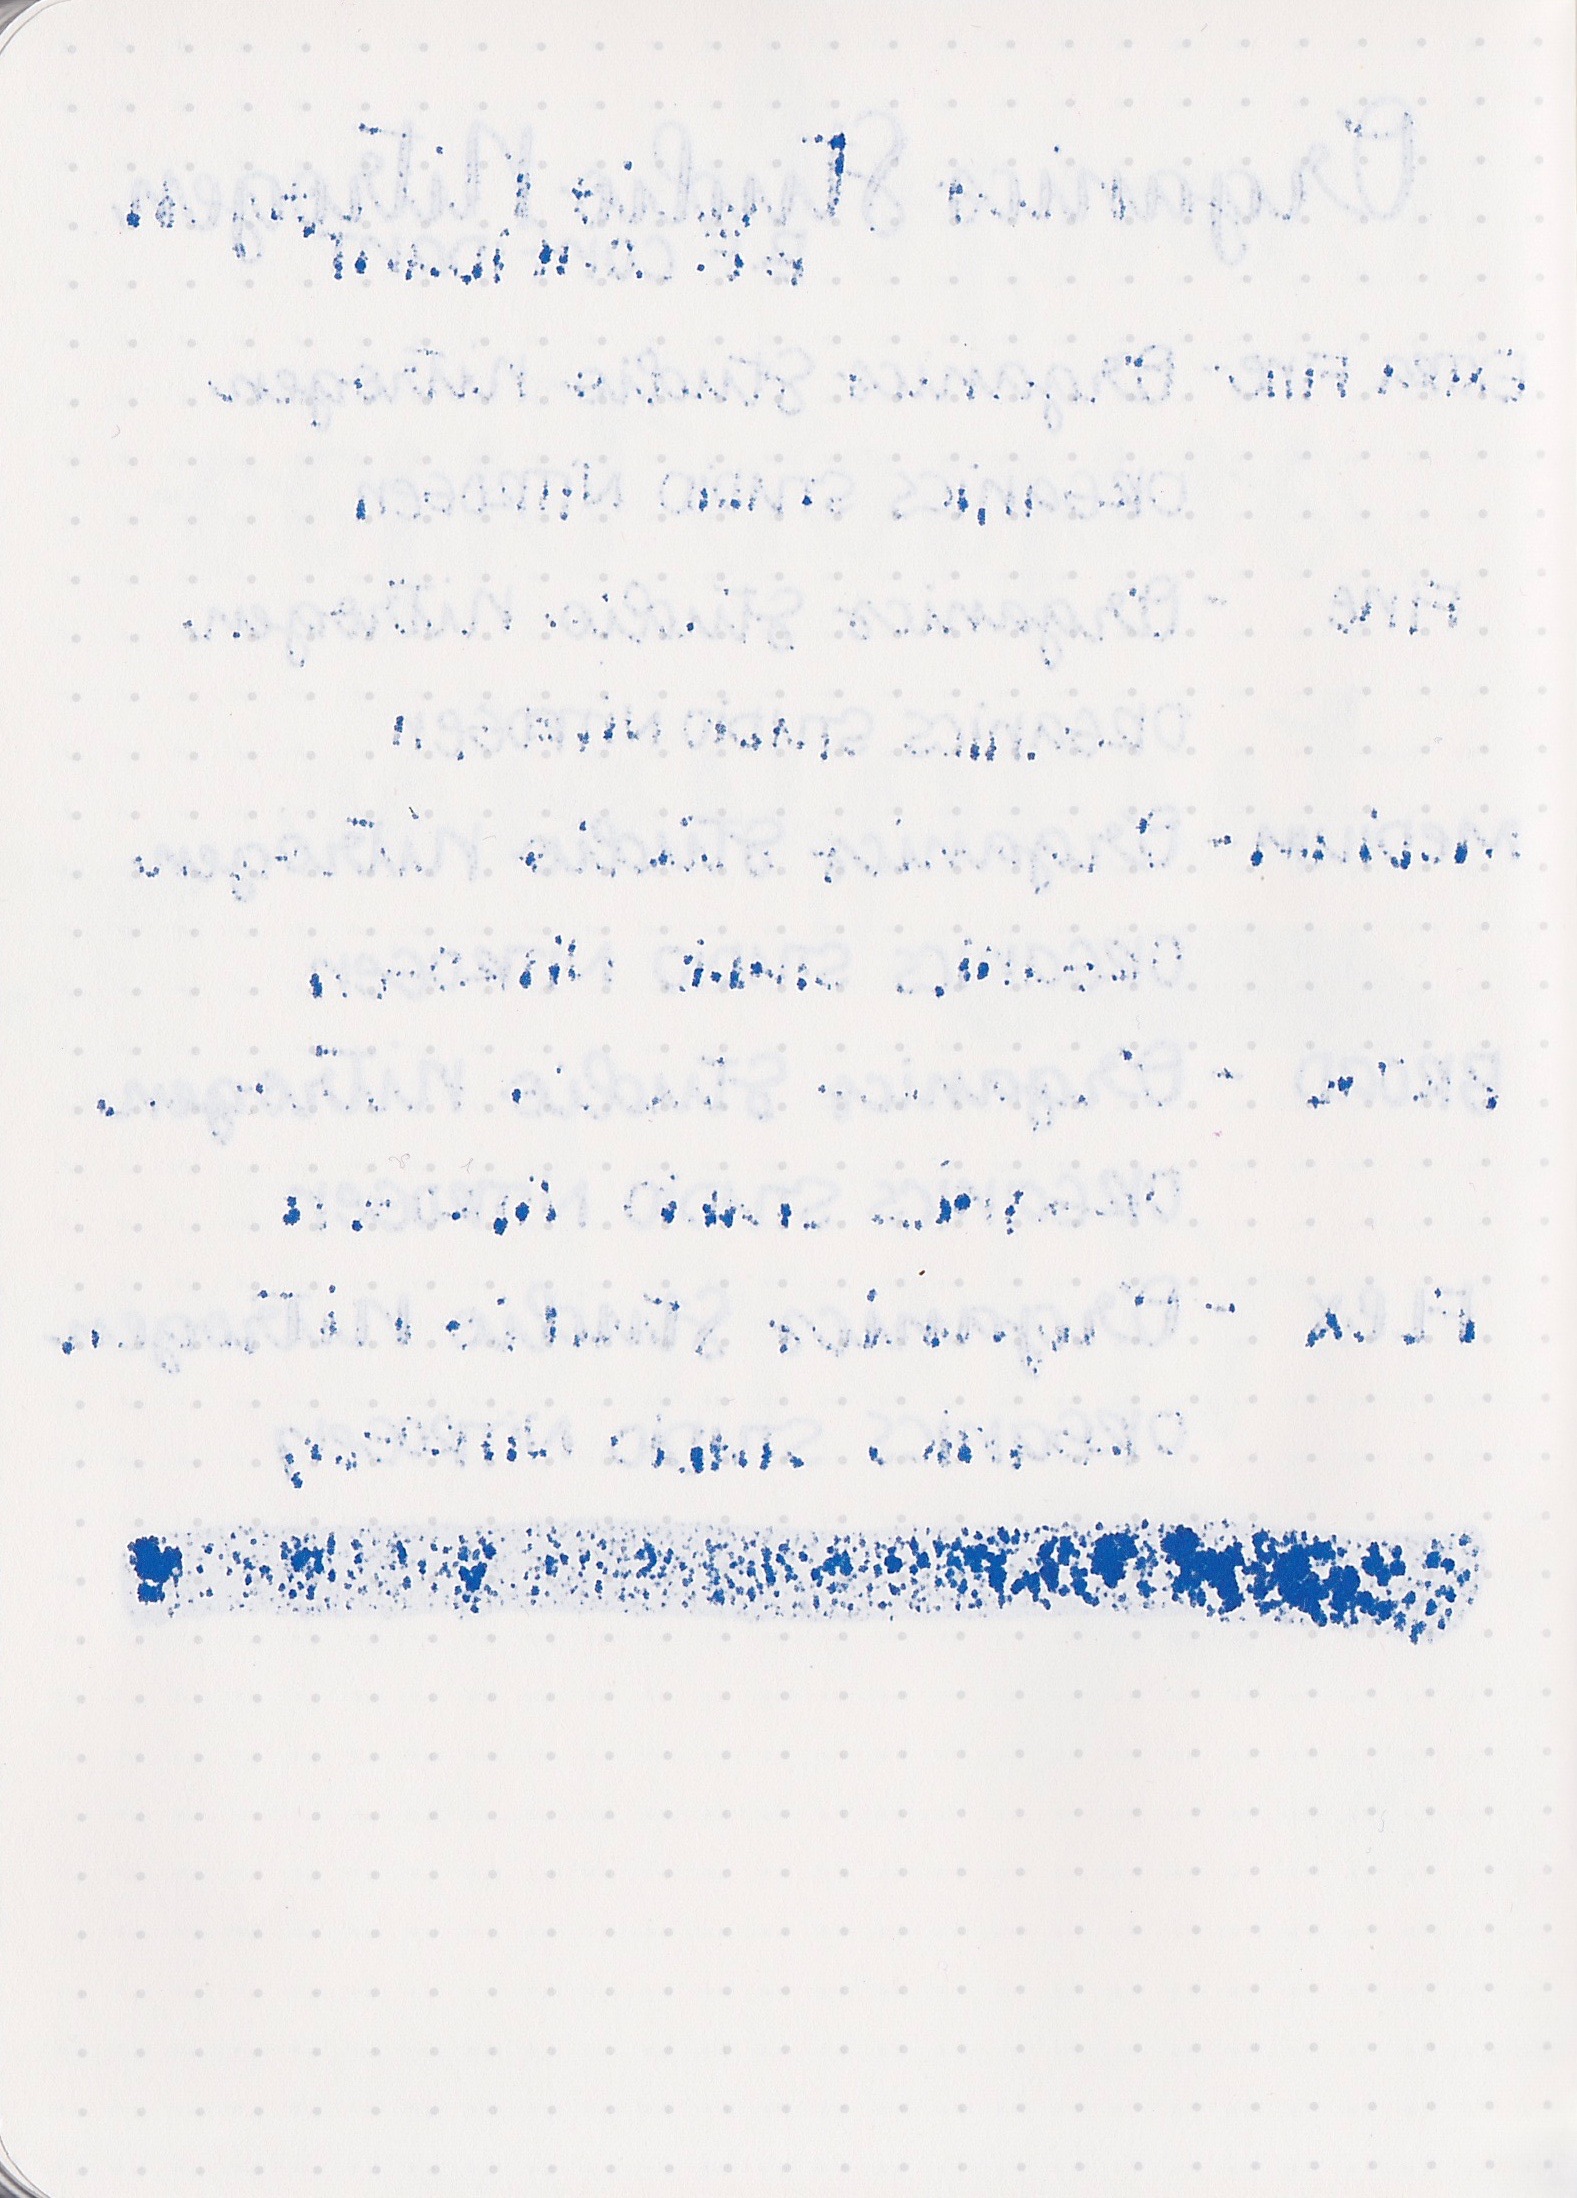 Organics Studio Nitrogen
Extra Fine - Organics Studio Nitrogen
ORGANICS STUDIO NITROGEN
Fine - Organics Studio Nitrogen
ORGANICS STUDIO NITROGEN
Medium - Organics Studio Nitrogen
ORGANICS STUDIO NITROGEN
BROAD - Organics Studio Nitrogen
ORGANICS STUDIO NITROGEN
Flex - Organics Studio Nitrogen
ORGANICS STUDIO NITROGEN